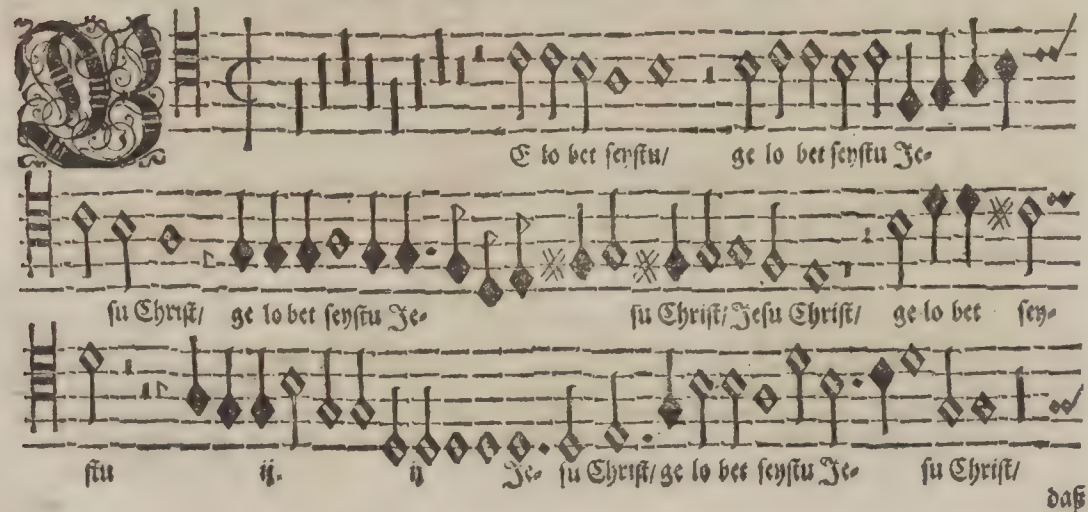 GE lo bet seystu/ ge lo bet seystu Je-
su Christ/ ge lo bet seystu Je- su Christ/ Jesu Christ/ ge lo bet sey-
stu ij. ij Je- su Christ/ ge lo bet seystu Je- su Christ/
daß